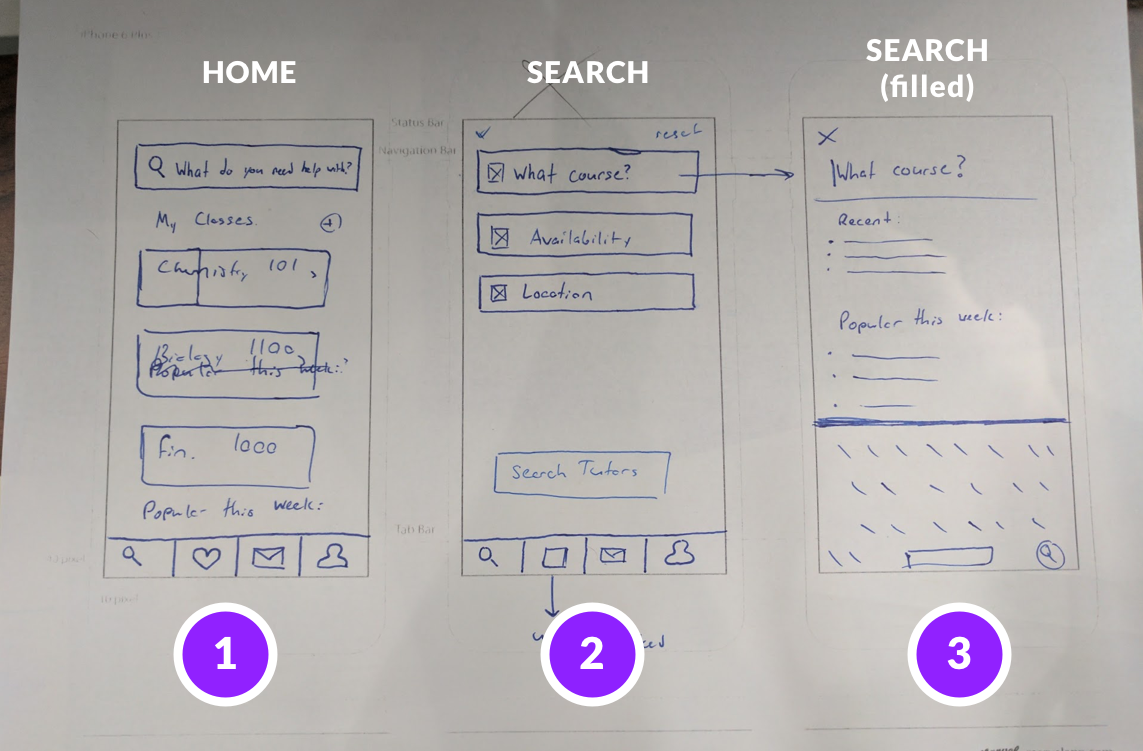 iPhone 6 Plus
HOME
What do you need help with?
My Classes
Chemistry 101
Biology 1100
Popular this week:
Fin. 1000
Popular this week:
1
Status Bar
Navigation Bar
Tab Bar
SEARCH
reset
What course?
Availability
Location
Search Tutors
2
SEARCH
(filled)
What course?
Recent:
Popular this week:
3